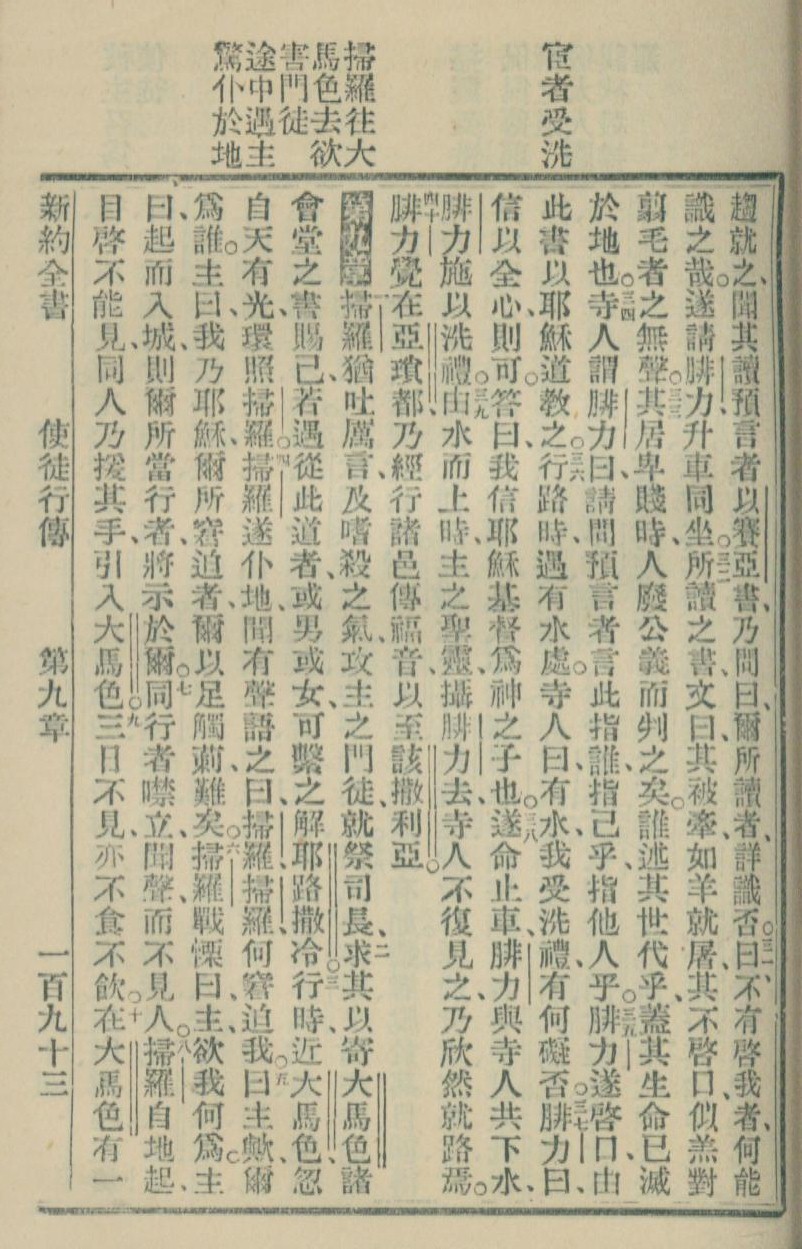 宦者受洗
掃羅往大
馬色去欲
害門徒
途中遇主
驚仆於地
趨就之、聞其讀預言者以賽亞書、乃問曰、爾所讀者、詳識否。三一曰、不有啓我者、何能
識之哉。遂請腓力升車同坐。三二所讀之書、文曰、其被牽、如羊就屠、其不啓口、似羔對
翦毛者之無聲。三三其居卑賤時、人廢公義而判之矣。誰述其世代乎、蓋其生命已滅
於地也。三四寺人謂腓力曰、請問預言者言此指誰、指己乎、指他人乎。三五腓力遂啓口、由
此書以耶穌道教之。三六行路時、遇有水處。寺人曰、有水、我受洗禮、有何礙否。三七腓力曰、
信以全心、則可。答曰、我信耶穌基督爲神之子也。三八遂命止車、腓力與寺人共下水、
腓力施以洗禮。三九由水而上時、主之聖靈、攝腓力去、寺人不復見之、乃欣然就路焉。
四十腓力覺在亞瑣都、乃經行諸邑傳福音、以至該撒利亞。
第九章一掃羅猶吐厲言、及嗜殺之氣、攻主之門徒、就祭司長、二求其以寄大馬色諸
會堂之書賜已、若遇從此道者、或男或女、可繫之解耶路撒冷。三行時、近大馬色、忽
自天有光、環照掃羅。四掃羅遂仆地、聞有聲語之曰、掃羅掃羅、何窘迫我。五曰、主歟、爾
爲誰。主曰、我乃耶穌、爾所窘迫者、爾以足觸薊、難矣。六掃羅戰慄曰、主、欲我何爲。主
曰、起而入城、則爾所當行者、將示於爾。七同行者噤立、聞聲而不見人。八掃羅自地起、
目啓不能見、同人乃援其手、引入大馬色。九三日不見、亦不食不飲。十在大馬色有一
新約全書 使徒行傳 第九章 一百九十三